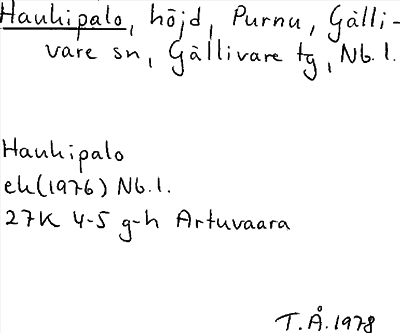 Hauhipalo, höjd, Purnu, Gälli-
vare sn, Gällivare tg, Nb.l.
Hauhipalo
ek(1976) Nb.l.
27K 4-5 g-h Artuvaara
T.Å.1978